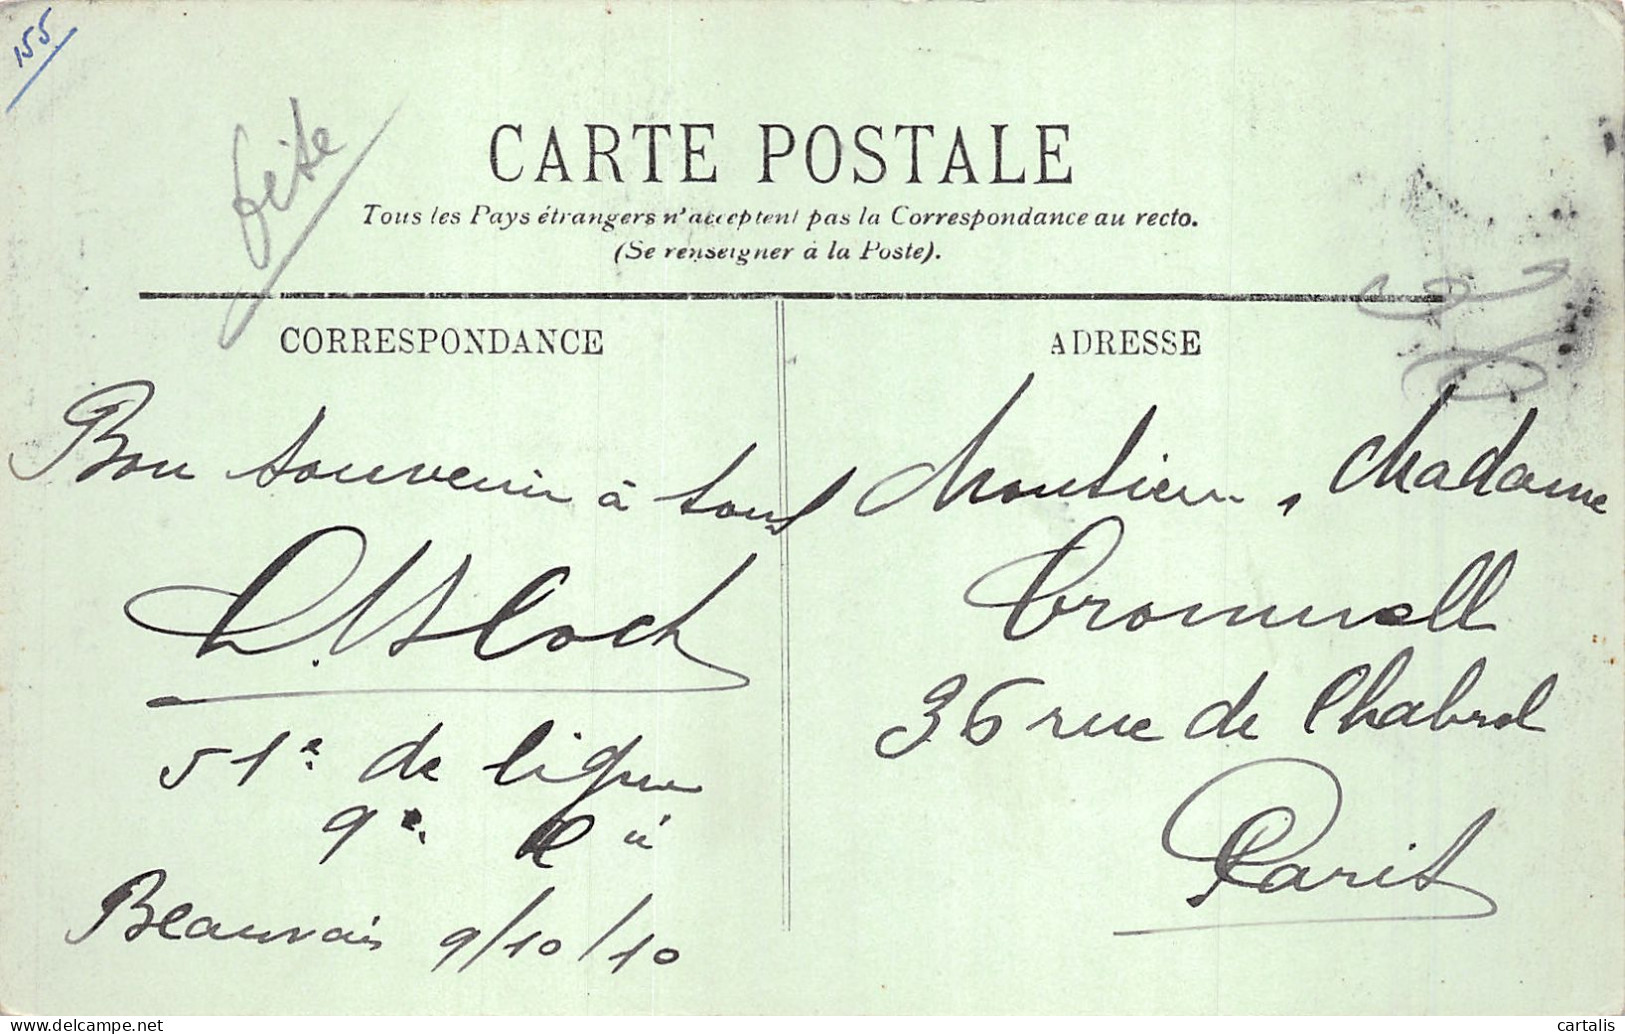 155
fête
CARTE POSTALE
Tous les Pays étrangers n'acceptent pas la Correspondance au recto.
(Se renseigner à la Poste).
CORRESPONDANCE
Bon souvenir à tous
Bloch
51e de ligne
9e Cie
Beauvais 9/10/10
ADRESSE
Monsieur, Madame
Cromwell
36 rue de Chabrol
Paris
cartalis